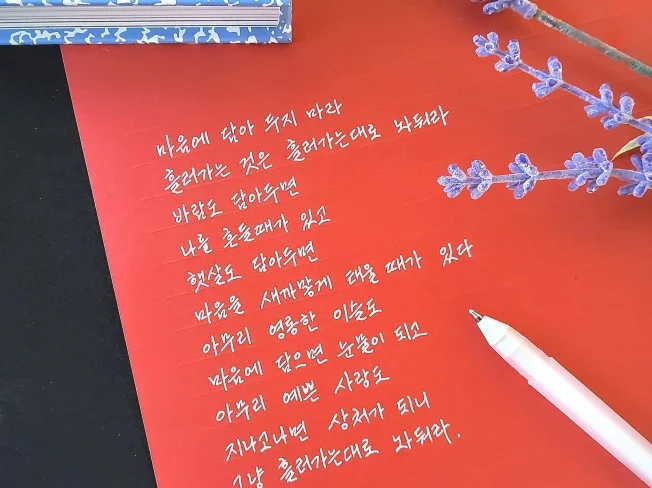 마음에 담아 두지 마라
흘러가는 것은 흘러가는대로 놔둬라
바람도 담아두면
나를 흔들때가 있고
햇살도 담아두면
마음을 새까맣게 태울 때가 있다
아무리 영롱한 이슬도
마음에 담으면 눈물이 되고
아무리 예쁜 사랑도
지나고나면 상처가 되니
그냥 흘러가는대로 놔둬라.